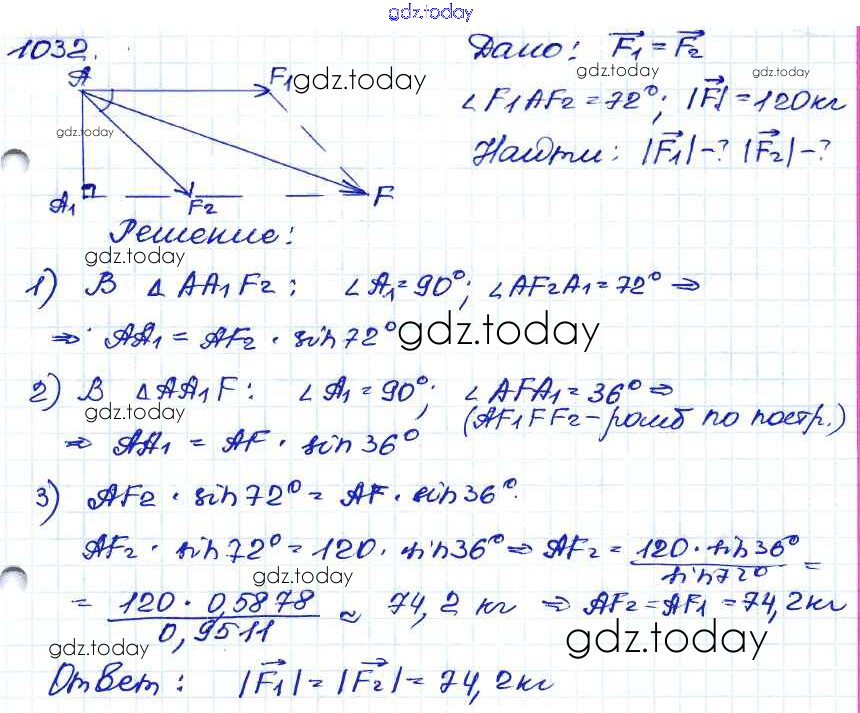 gdz.today
1032.
Дано: F₁ = F₂
A F₁ gdz.today
gdz.today gdz.today
∠F₁AF₂ = 72°; |F| = 120 кг
gdz.today
Найти: |F₁| - ? |F₂| - ?
A₁ F₂ F
Решение:
gdz.today
1) В △AA₁F₂: ∠A₁ = 90°; ∠AF₂A₁ = 72° ⇒
⇒ AA₁ = AF₂ · sin 72° gdz.today
2) В △AA₁F: ∠A₁ = 90°; ∠AFA₁ = 36° ⇒
gdz.today
(AF₁FF₂ - ромб по постр.)
⇒ AA₁ = AF · sin 36°
3) AF₂ · sin 72° = AF · sin 36°.
AF₂ · sin 72° = 120 · sin 36° ⇒ AF₂ = 120 · sin 36° / sin 72° =
gdz.today
= 120 · 0,5878 / 0,9511 ≈ 74,2 кг ⇒ AF₂ = AF₁ = 74,2 кг
gdz.today gdz.today
Ответ: |F₁| = |F₂| = 74,2 кг